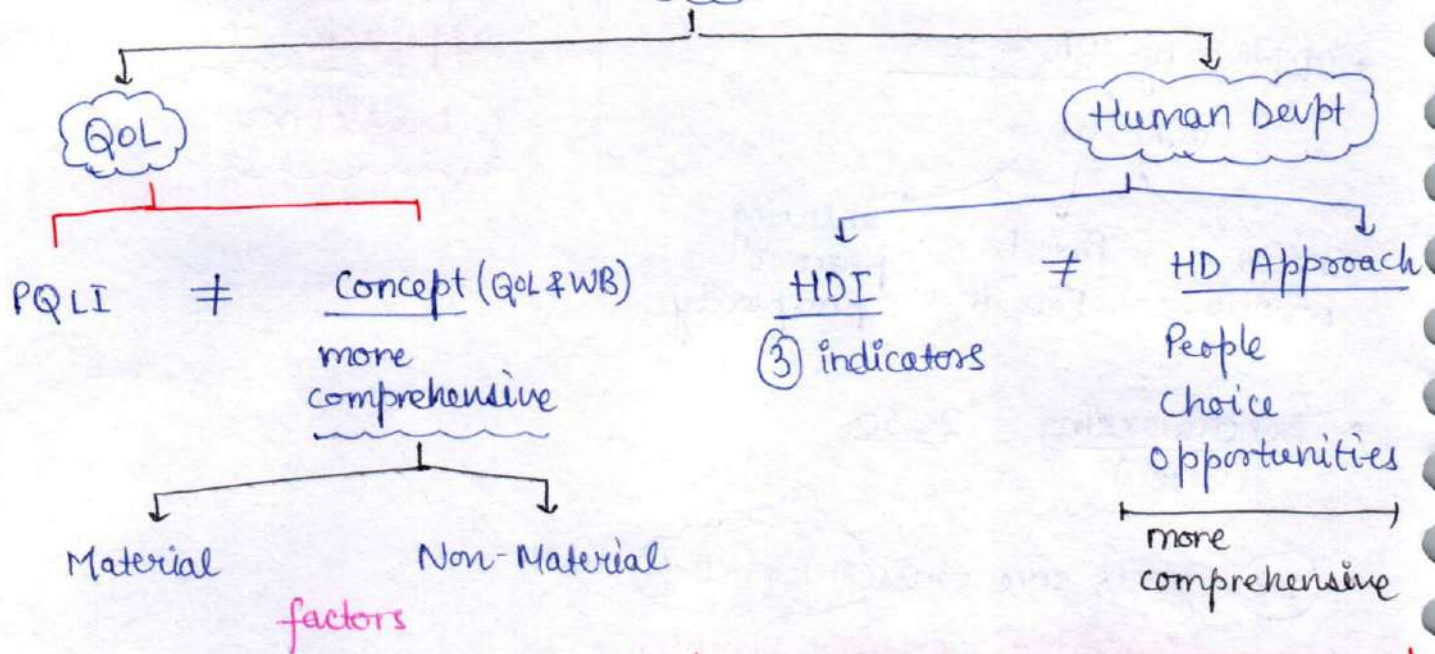 QOL
Human Devpt
PQLI ≠ Concept (QOL & WB)
more
comprehensive
Material Non-Material
factors
HDI ≠ HD Approach
③ indicators
People
Choice
Opportunities
more
comprehensive